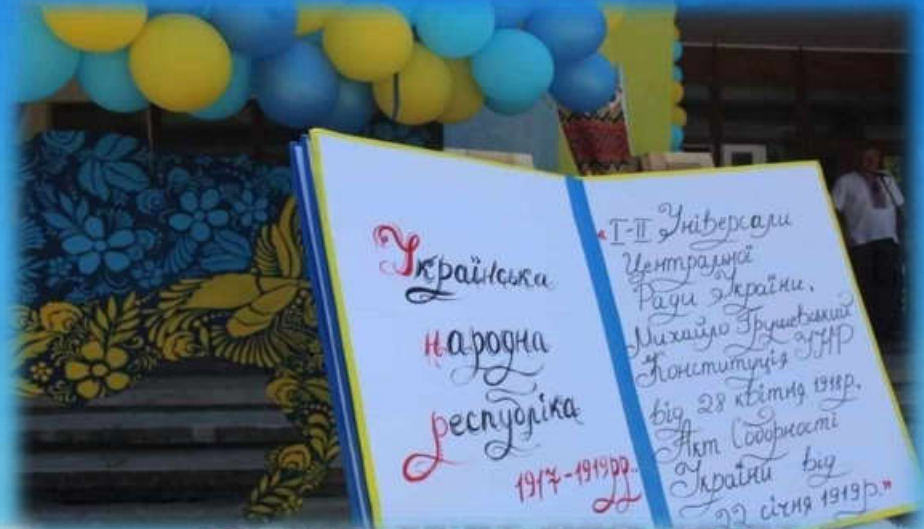 Українська
народна
республіка
1917-1919рр.
"I-II Універсали
Центральної
Ради України.
Михайло Грушевський
Конституція УНР
від 28 квітня 1918р.
Акт Соборності
України від
22 січня 1919р."